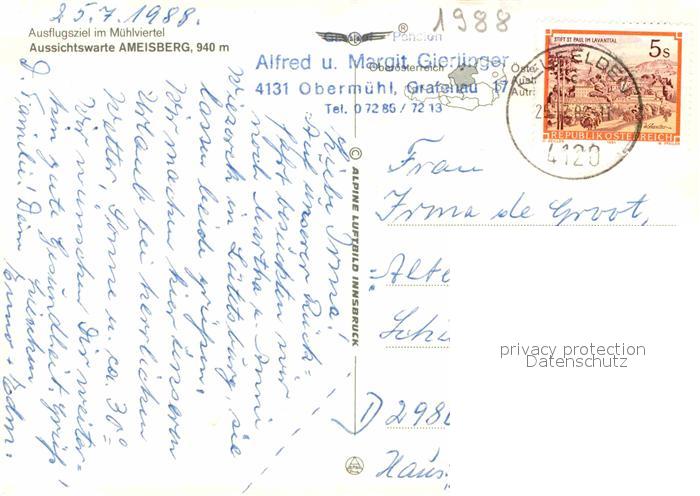 25.7.1988.
Ausflugsziel im Mühlviertel
Aussichtswarte AMEISBERG, 940 m
®
Pension
Alfred u. Margit Gierlinger
4131 Obermühl, Grafenau 17
Tel. 0 72 85 / 72 13
Oberösterreich
1988
STIFT ST. PAUL IM LAVANTTAL
5 S
REPUBLIK ÖSTERREICH
4120
© ALPINE LUFTBILD INNSBRUCK
Liebe Irma!
Auf unserer Rück-
fahrt besuchten wir
noch Martha u. Anni
Wiesarek in Lütetsburg, sie
lassen beide grüßen.
Wir machen hier unseren
Urlaub bei herrlichen
Wetter, Sonne u. ca. 30°
Wir wünschen Dir weiter-
hin gute Gesundheit. Grüß
d. Familie! Deine
Frau
Irma de Groot,
Alte
D 298
privacy protection
Datenschutz